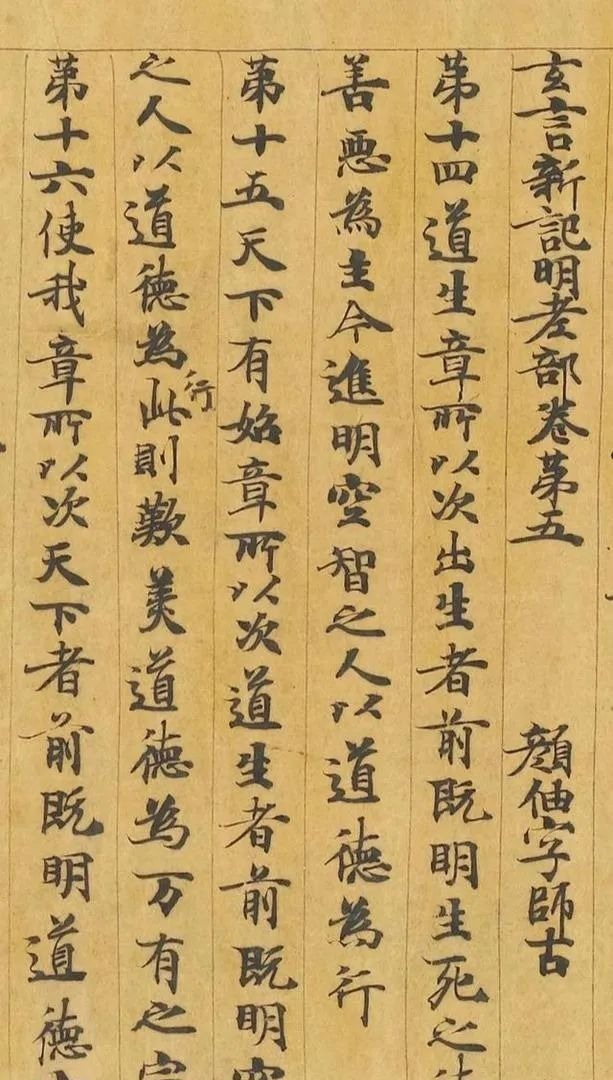 玄言新記明老部卷第五 顏伷字師古
第十四道生章所以次出生者前既明生死之
善惡為主今進明空智之人以道德為行
第十五天下有始章所以次道生者前既明空
之人以道德為行此則歎美道德為万有之
第十六使我章所以次天下者前既明道德